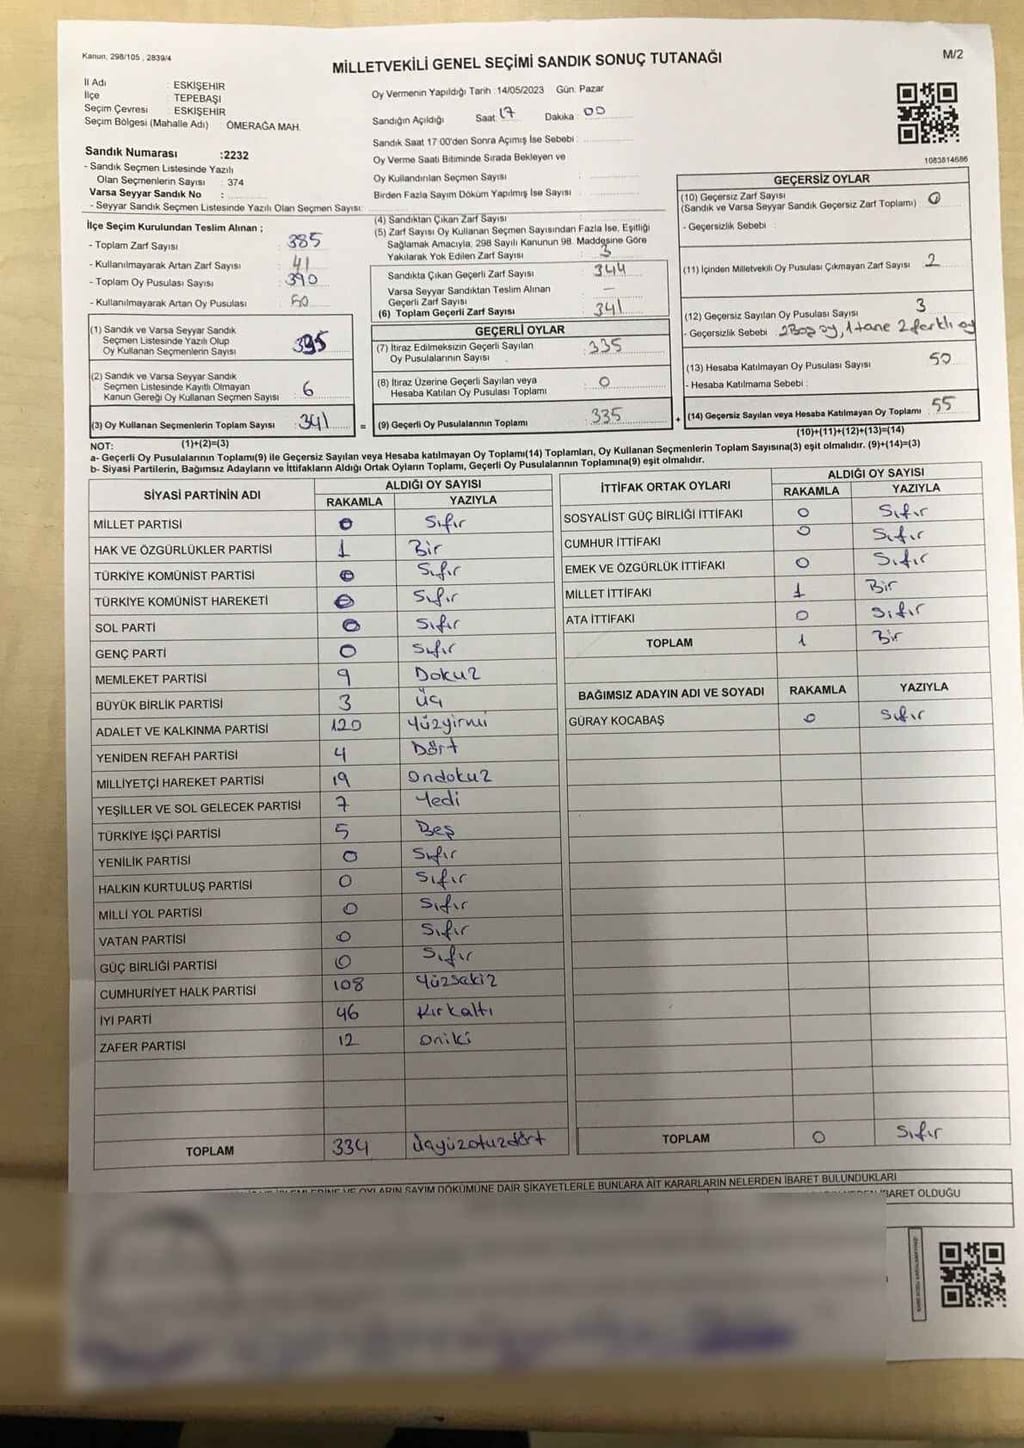 Kanun, 298/105 , 2839/4
MİLLETVEKİLİ GENEL SEÇİMİ SANDIK SONUÇ TUTANAĞI
M/2
İl Adı : ESKİŞEHİR
İlçe : TEPEBAŞI
Seçim Çevresi : ESKİŞEHİR
Seçim Bölgesi (Mahalle Adı) : ÖMERAĞA MAH.
Sandık Numarası :2232
- Sandık Seçmen Listesinde Yazılı
Olan Seçmenlerin Sayısı : 374
Varsa Seyyar Sandık No :
- Seyyar Sandık Seçmen Listesinde Yazılı Olan Seçmen Sayısı:
Oy Vermenin Yapıldığı Tarih :14/05/2023 Gün: Pazar
Sandığın Açıldığı Saat: 17 Dakika: 00
Sandık Saat 17:00'den Sonra Açılmış İse Sebebi :
Oy Verme Saati Bitiminde Sırada Bekleyen ve
Oy Kullandırılan Seçmen Sayısı :
Birden Fazla Sayım Döküm Yapılmış İse Sayısı :
1083814686
İlçe Seçim Kurulundan Teslim Alınan ;
- Toplam Zarf Sayısı : 385
- Kullanılmayarak Artan Zarf Sayısı : 41
- Toplam Oy Pusulası Sayısı : 390
- Kullanılmayarak Artan Oy Pusulası : 50
(1) Sandık ve Varsa Seyyar Sandık
Seçmen Listesinde Yazılı Olup
Oy Kullanan Seçmenlerin Sayısı :
(2) Sandık ve Varsa Seyyar Sandık
Seçmen Listesinde Kayıtlı Olmayan
Kanun Gereği Oy Kullanan Seçmen Sayısı : 6
(3) Oy Kullanan Seçmenlerin Toplam Sayısı : 341
(1)+(2)=(3)
(4) Sandıktan Çıkan Zarf Sayısı :
(5) Zarf Sayısı Oy Kullanan Seçmen Sayısından Fazla İse, Eşitliği
Sağlamak Amacıyla, 298 Sayılı Kanunun 98. Maddesine Göre
Yakılarak Yok Edilen Zarf Sayısı : 3
Sandıkta Çıkan Geçerli Zarf Sayısı : 344
Varsa Seyyar Sandıktan Teslim Alınan
Geçerli Zarf Sayısı : —
(6) Toplam Geçerli Zarf Sayısı : 341
GEÇERLİ OYLAR
(7) İtiraz Edilmeksizin Geçerli Sayılan
Oy Pusulalarının Sayısı : 335
(8) İtiraz Üzerine Geçerli Sayılan veya
Hesaba Katılan Oy Pusulası Toplamı : 0
= (9) Geçerli Oy Pusulalarının Toplamı : 335
GEÇERSİZ OYLAR
(10) Geçersiz Zarf Sayısı
(Sandık ve Varsa Seyyar Sandık Geçersiz Zarf Toplamı) : 0
- Geçersizlik Sebebi :
(11) İçinden Milletvekili Oy Pusulası Çıkmayan Zarf Sayısı : 2
(12) Geçersiz Sayılan Oy Pusulası Sayısı : 3
- Geçersizlik Sebebi : 2 Boş oy, 1 tane 2 farklı oy
(13) Hesaba Katılmayan Oy Pusulası Sayısı : 50
- Hesaba Katılmama Sebebi :
+ (14) Geçersiz Sayılan veya Hesaba Katılmayan Oy Toplamı : 55
(10)+(11)+(12)+(13)=(14)
NOT:
a- Geçerli Oy Pusulalarının Toplamı(9) ile Geçersiz Sayılan veya Hesaba katılmayan Oy Toplamı(14) Toplamları, Oy Kullanan Seçmenlerin Toplam Sayısına(3) eşit olmalıdır. (9)+(14)=(3)
b- Siyasi Partilerin, Bağımsız Adayların ve İttifakların Aldığı Ortak Oyların Toplamı, Geçerli Oy Pusulalarının Toplamına(9) eşit olmalıdır.
SİYASİ PARTİNİN ADI ALDIĞI OY SAYISI
RAKAMLA YAZIYLA
MİLLET PARTİSİ 0 Sıfır
HAK VE ÖZGÜRLÜKLER PARTİSİ 1 Bir
TÜRKİYE KOMÜNİST PARTİSİ 0 Sıfır
TÜRKİYE KOMÜNİST HAREKETİ 0 Sıfır
SOL PARTİ 0 Sıfır
GENÇ PARTİ 0 Sıfır
MEMLEKET PARTİSİ 9 Dokuz
BÜYÜK BİRLİK PARTİSİ 3 Üç
ADALET VE KALKINMA PARTİSİ 120 Yüzyirmi
YENİDEN REFAH PARTİSİ 4 Dört
MİLLİYETÇİ HAREKET PARTİSİ 19 Ondokuz
YEŞİLLER VE SOL GELECEK PARTİSİ 7 Yedi
TÜRKİYE İŞÇİ PARTİSİ 5 Beş
YENİLİK PARTİSİ 0 Sıfır
HALKIN KURTULUŞ PARTİSİ 0 Sıfır
MİLLİ YOL PARTİSİ 0 Sıfır
VATAN PARTİSİ 0 Sıfır
GÜÇ BİRLİĞİ PARTİSİ 0 Sıfır
CUMHURİYET HALK PARTİSİ 108 Yüzsekiz
İYİ PARTİ 46 Kırkaltı
ZAFER PARTİSİ 12 Oniki
TOPLAM 334 Üçyüzotuzdört
İTTİFAK ORTAK OYLARI ALDIĞI OY SAYISI
RAKAMLA YAZIYLA
SOSYALİST GÜÇ BİRLİĞİ İTTİFAKI 0 Sıfır
CUMHUR İTTİFAKI 0 Sıfır
EMEK VE ÖZGÜRLÜK İTTİFAKI 0 Sıfır
MİLLET İTTİFAKI 1 Bir
ATA İTTİFAKI 0 Sıfır
TOPLAM 1 Bir
BAĞIMSIZ ADAYIN ADI VE SOYADI RAKAMLA YAZIYLA
GÜRAY KOCABAŞ 0 Sıfır
TOPLAM 0 Sıfır
VE OYLARIN SAYIM DÖKÜMÜNE DAİR ŞİKAYETLERLE BUNLARA AİT KARARLARIN NELERDEN İBARET BULUNDUKLARI
İBARET OLDUĞU